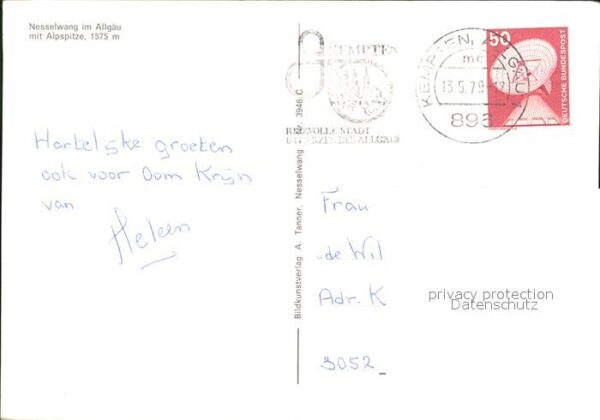 Nesselwang im Allgäu
mit Alpspitze, 1575 m
KEMPTEN
REIZVOLLE STADT
IM HERZEN DES ALLGÄUS
KEMPTEN, ALLGÄU
mc
13.5.79-12
896
50
DEUTSCHE BUNDESPOST
Hartelijke groeten
ook voor Oom Krijn
van
Heleen
Bildkunstverlag A. Tanner, Nesselwang Nr. 3946 C
Frau
de Wil
Adr. K
3052
privacy protection
Datenschutz